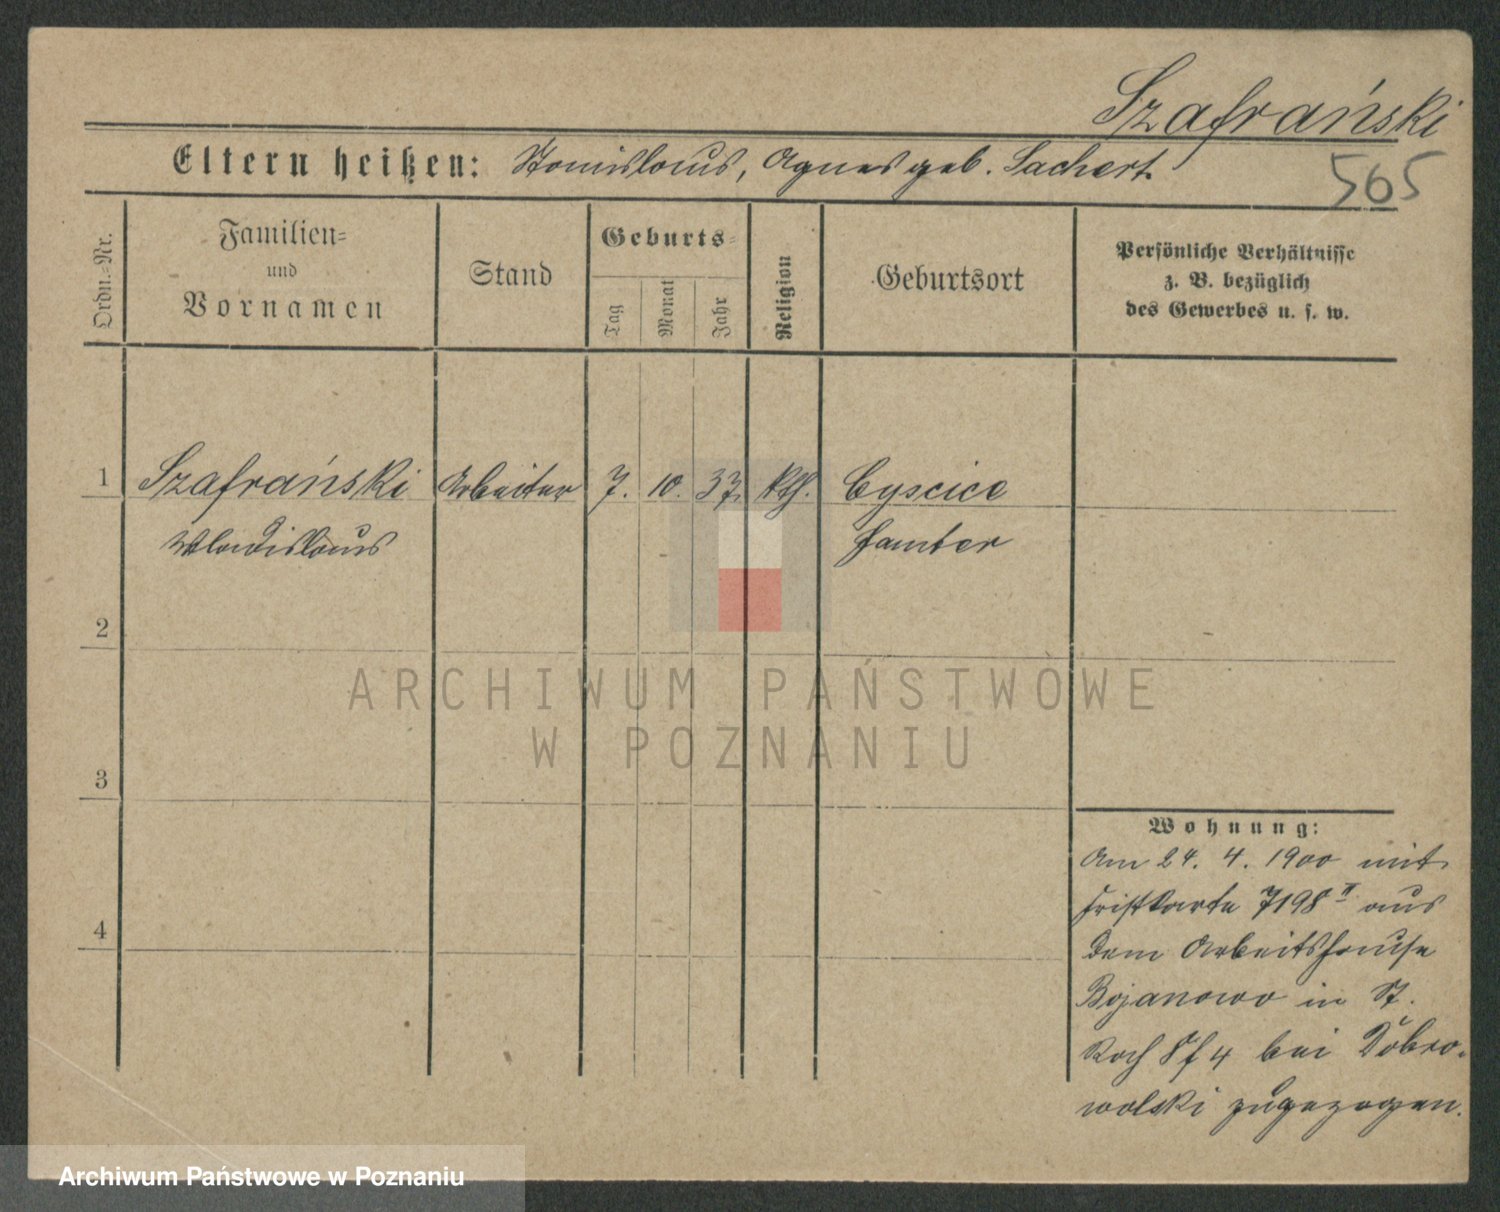 Szafrański
Eltern heißen: Stanislaus, Agnes geb. Sachert.
565
Ordn.-Nr.
Familien-
und
Vornamen
Stand
Geburts-
Tag
Monat
Jahr
Religion
Geburtsort
Persönliche Verhältnisse
z. B. bezüglich
des Gewerbes u. s. w.
1 Szafrański Arbeiter 7. 10. 37. kth. Cyscice
Wladislaus Samter
2
ARCHIWUM PAŃSTWOWE
W POZNANIU
3
Wohnung:
Am 24. 4. 1900 mit
Fristkarte 7198 II aus
dem Arbeitshause
4
Bojanowo in St.
Roch 8f 4 bei Dobro-
wolski zugezogen.
Archiwum Państwowe w Poznaniu